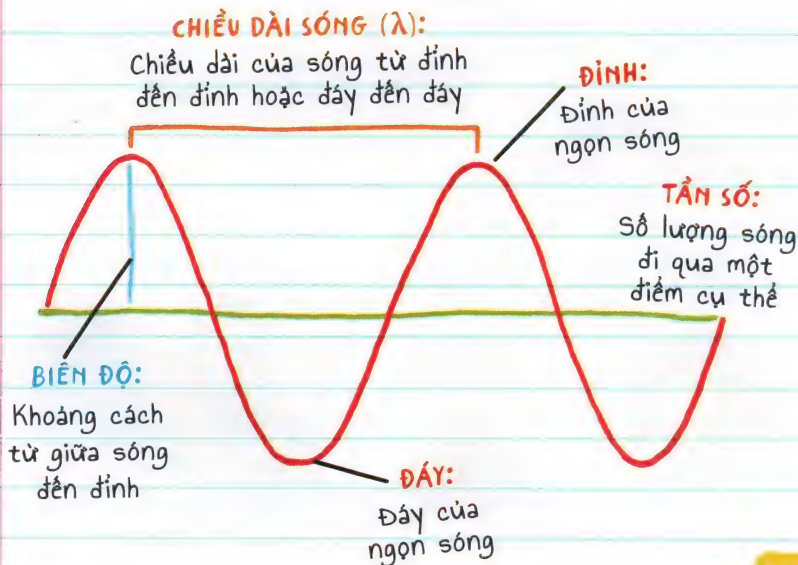 CHIỀU DÀI SÓNG (λ):
Chiều dài của sóng từ đỉnh
đến đỉnh hoặc đáy đến đáy
ĐỈNH:
Đỉnh của
ngọn sóng
TẦN SỐ:
Số lượng sóng
đi qua một
điểm cụ thể
BIÊN ĐỘ:
Khoảng cách
từ giữa sóng
đến đỉnh
ĐÁY:
Đáy của
ngọn sóng